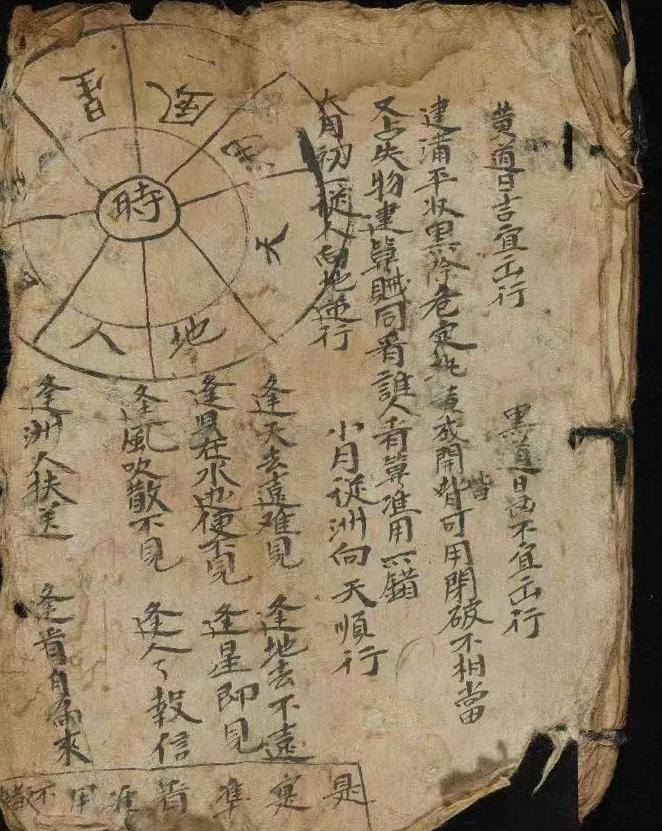 黄道日吉宜出行 黑道日凶不宜出行
建浦平收黑除危定执黄成開皆可用閉破不相當
又占失物建算賊同看誰人看算准用不錯
大月初一從人向地逆行 小月從洲向天順行
逢天去遠難見 逢地去不遠
逢在水边便不見 逢星即見
逢風吹散不見 逢人々報信
逢洲人扶送 逢自為來
時
天
地
人
風
是寔準准用不